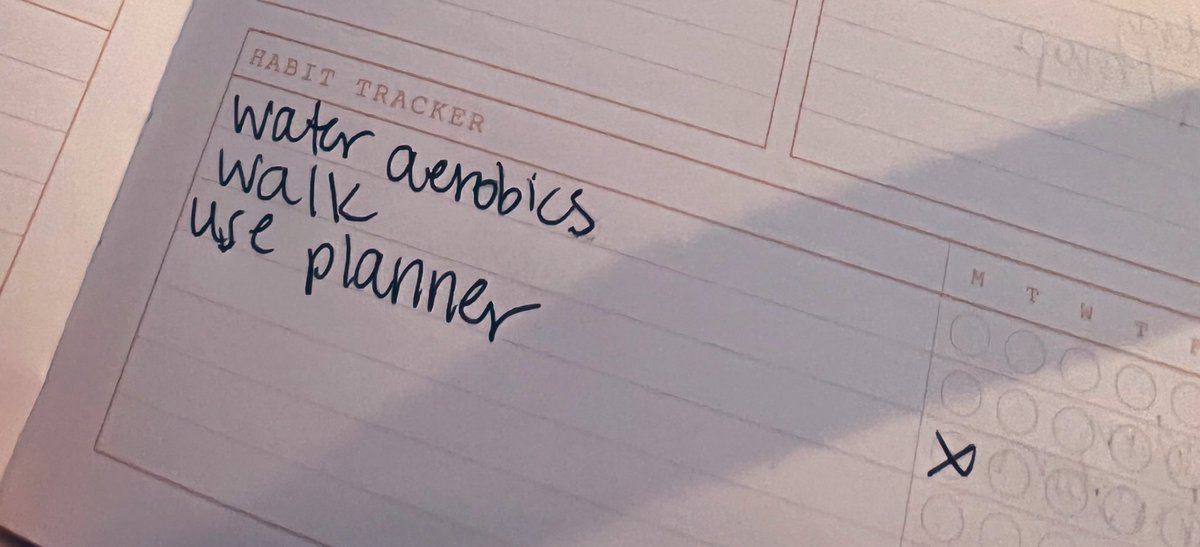 HABIT TRACKER
water aerobics
walk
use planner
M T W T F
X